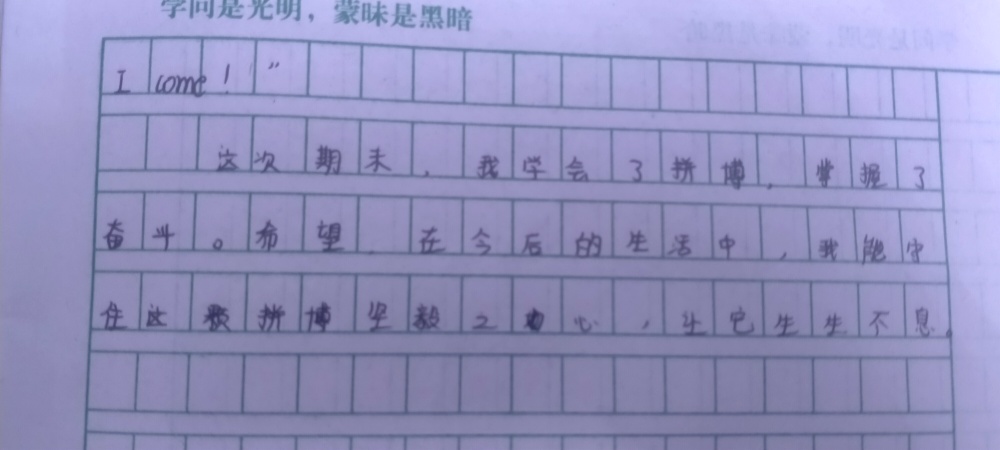 学问是光明，蒙昧是黑暗
I come！”
这次期末，我学会了拼博，掌握了
奋斗。希望，在今后的生活中，我能守
住这颗拼博坚毅之心，让它生生不息。